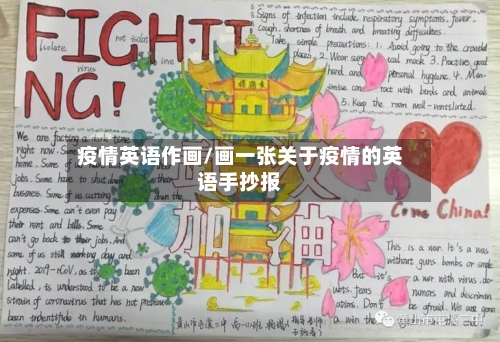 FIGHTI
NG!
Isolate
virus
not isolate
love
Signs of infection include respiratory symptoms, fever,
cough, shortness of breath and breathing difficulties.
Take simple precautions: 1. Avoid going to the crowded
places. 2. Wear surgical mask 3. Practice good
hand and personal hygiene. 4. Min-
imise contact with birds and animals
5. Keep the room well-ventilated.
We are facing a dark time
right now. Some
home. Some of
jobs. Some have to shut down their
business. Some of us cutting down the
expenses. Some can't even pay
their rent and bills. Some
can't go back to their jobs. And
some of us still working day and
night. 2019-nCoV, as it's been
labelled, is understood to be a new
strain of coronavirus that has not previously
been indentified in humans.
疫情英语作画/画一张关于疫情的英
语手抄报
武汉
加油
Come China!
This is a war. It's a war
without guns, bombs or
But it's a war with virus, do-
ubts, fears, rumors and discrimin-
ations. Don't be afraid. We are gonna
win the
黄山市屯溪二中